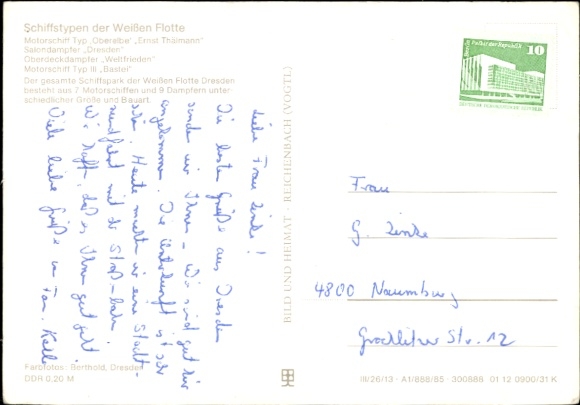 Schiffstypen der Weißen Flotte
Motorschiff Typ „Oberelbe“ „Ernst Thälmann“
Salondampfer „Dresden“
Oberdeckdampfer „Weltfrieden“
Motorschiff Typ III „Bastei“
Der gesamte Schiffspark der Weißen Flotte Dresden
besteht aus 7 Motorschiffen und 9 Dampfern unter-
schiedlicher Größe und Bauart.
Liebe Frau Zinke!
Die besten Grüße aus Dresden
senden wir Ihnen. Wir sind gut hier
angekommen. Die Unterkunft ist sehr
schön. Heute machten wir eine Stadt-
rundfahrt mit der Straß-bahn.
Wir hoffen, daß es Ihnen gut geht.
Viele liebe Grüße von Fam.
Farbfotos: Berthold, Dresden
DDR 0,20 M
BILD UND HEIMAT REICHENBACH (VOGTL)
Berlin Palast der Republik
10
DEUTSCHE DEMOKRATISCHE REPUBLIK
Frau
G. Zinke
4800 Naumburg
Grochlitzer Str. 12
III/26/13 · A1/888/85 · 300888 01 12 0900/31 K